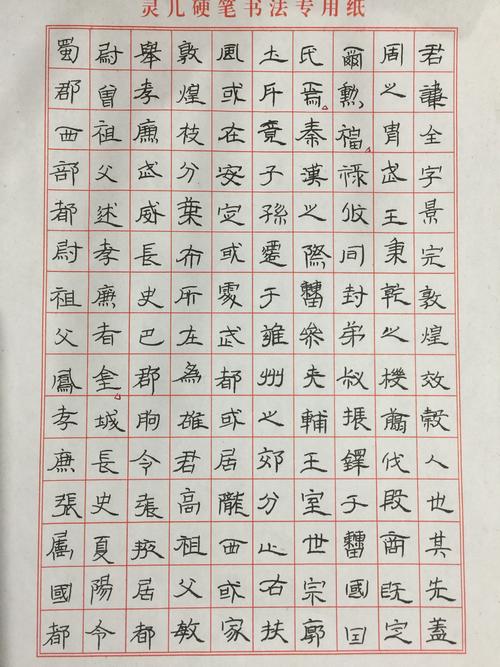 灵儿硬笔书法专用纸
君諱全字景完敦煌效穀人也其先蓋
周之胄武王秉乾之機翦伐殷商既定
爾勳福祿攸同封弟叔振鐸于曹國因
氏焉秦漢之際曹參夾輔王室世宗廓
土斥竟子孫遷于雍州之郊分止右扶
風或在安定或處武都或居隴西或家
敦煌枝分葉布所在為雄君高祖父敏
舉孝廉武威長史巴郡朐令張掖居都
尉曾祖父述孝廉者金城長史夏陽令
蜀郡西部都尉祖父鳳孝廉張屬國都